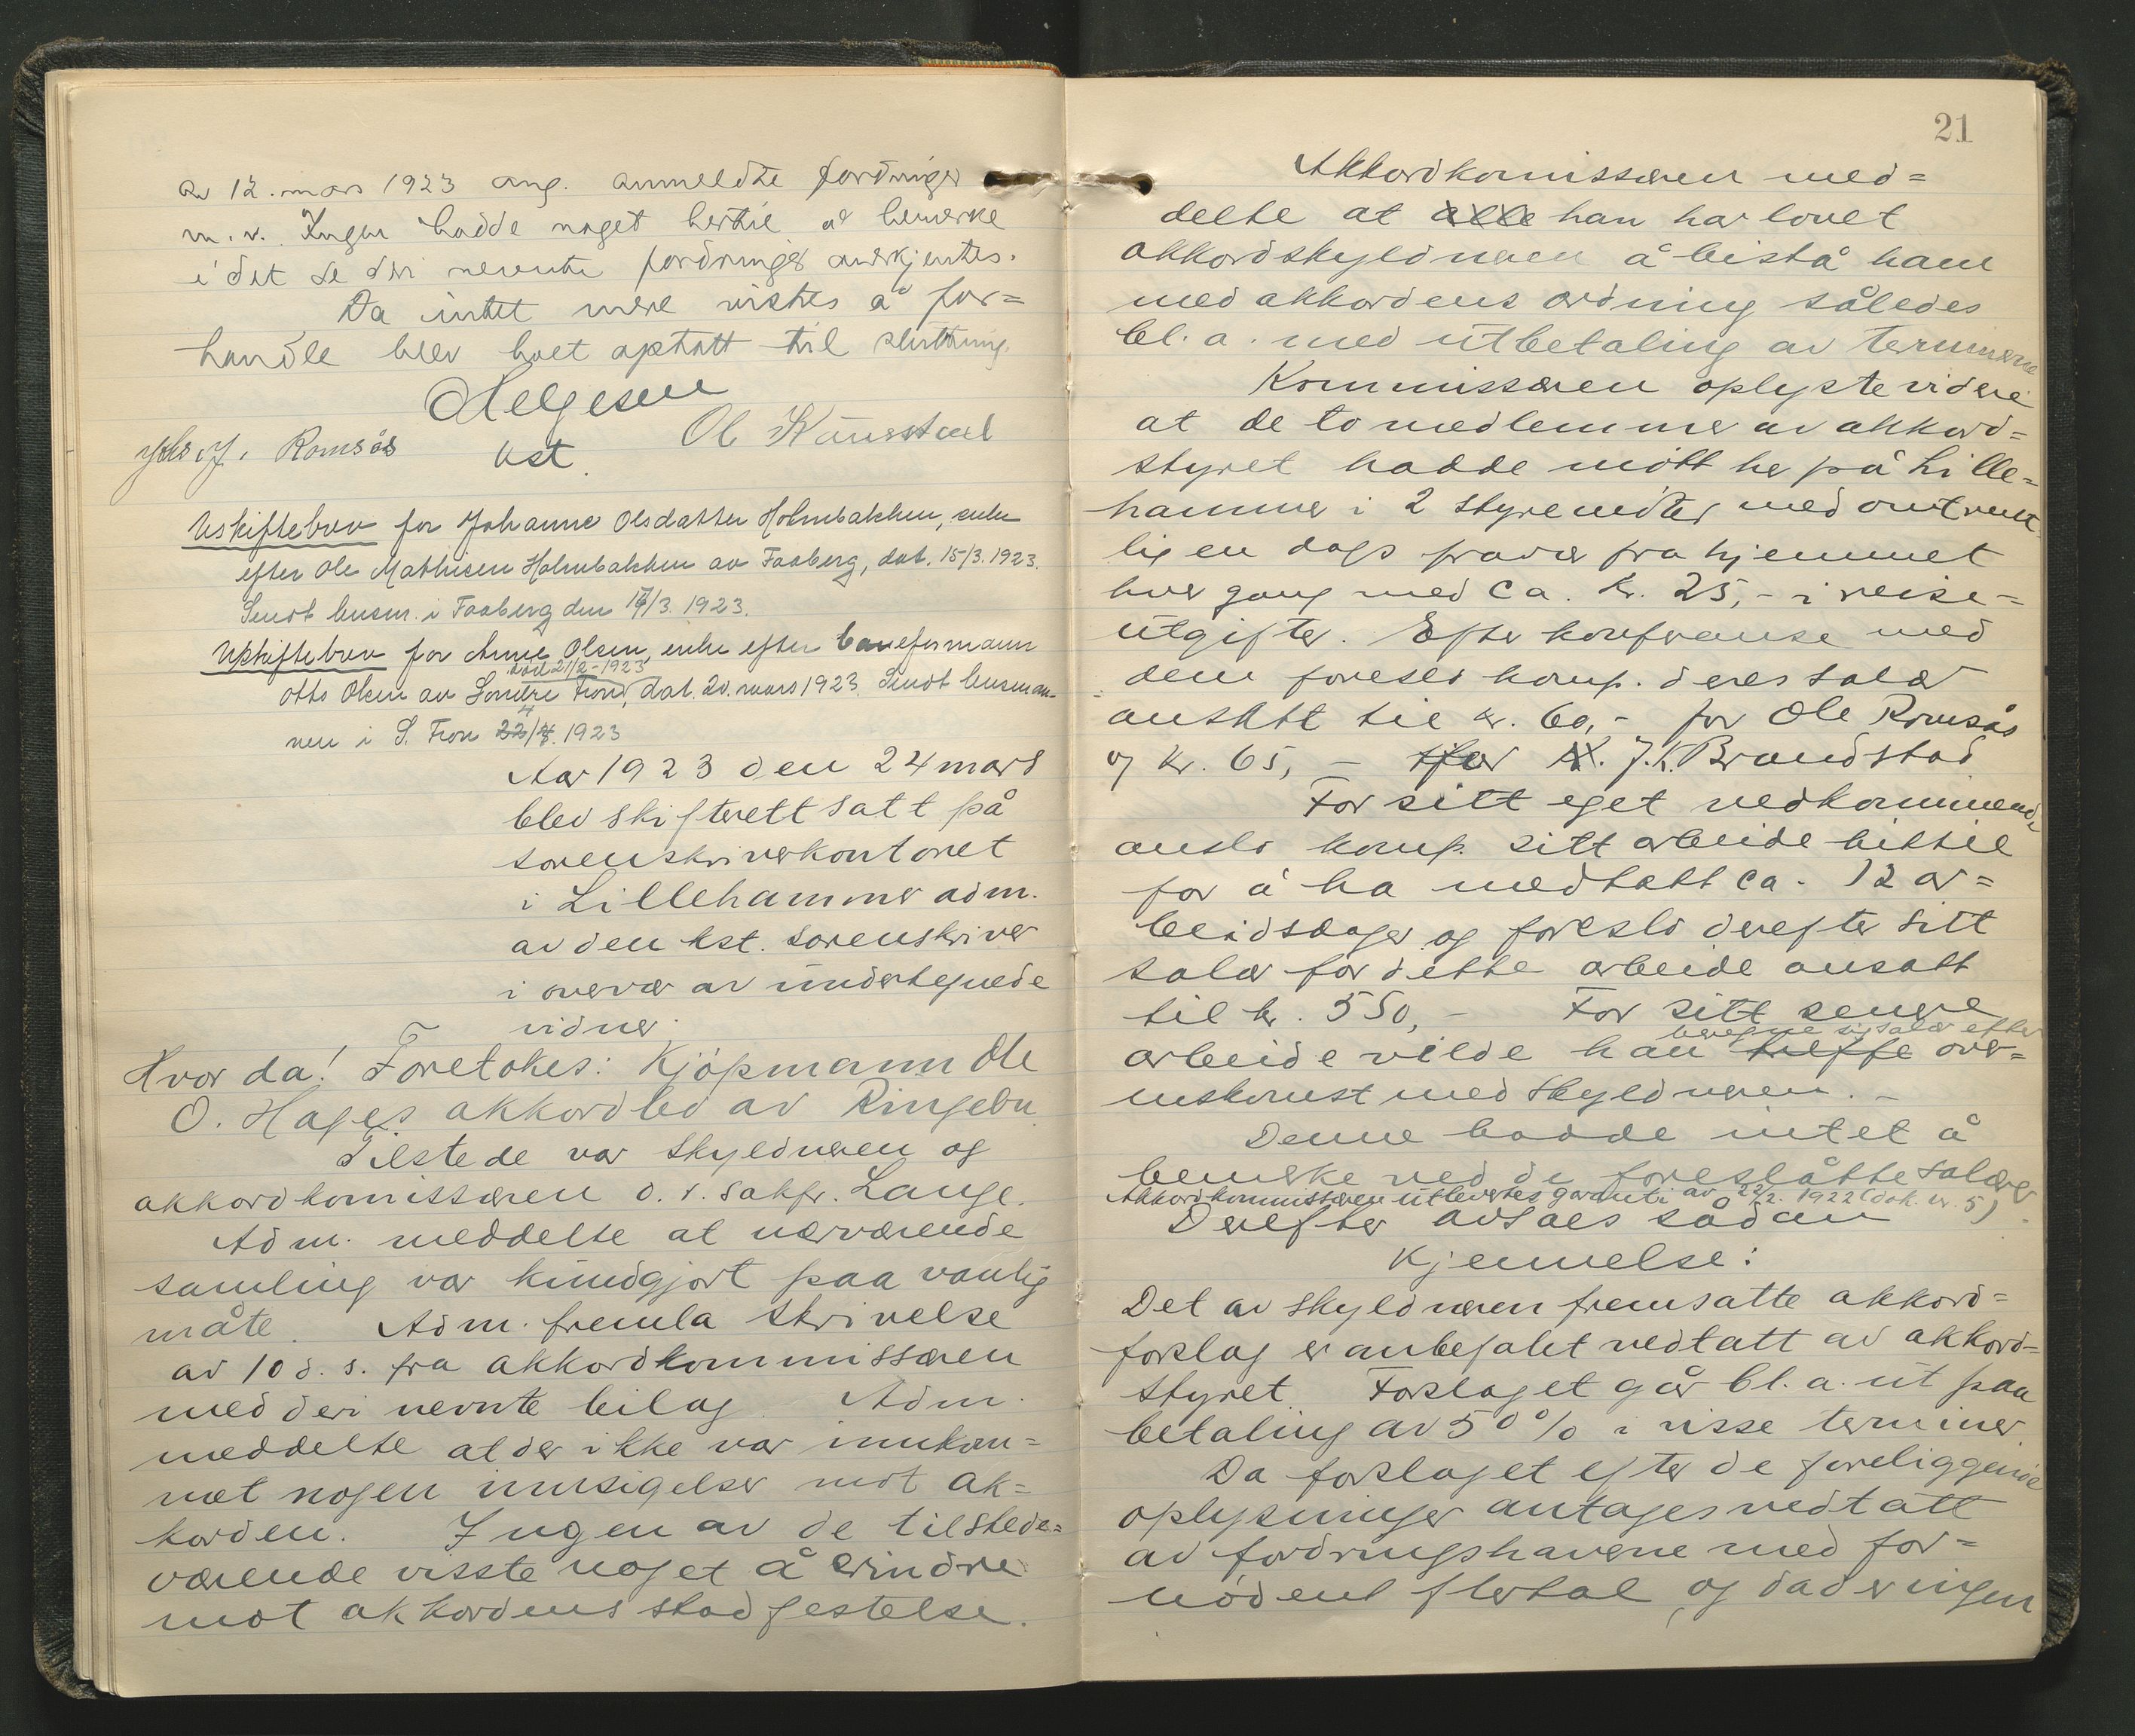 av 12. mars 1923 ang. anmeldte fordringer
m. v. Ingen hadde noget hertil å bemerke
i det de deri nevnte fordringer anerkjentes.
Da intet mere vistes å for=
handle blev boet optatt til slutning.
Helgesen
Kst.
Ol
Johs. J. Romsås
Uskiftebrev for Johanne Olsdatter Holmbakken, enke
efter Ole Mathisen Holmbakken av Faaberg, dat. 15/3. 1923.
Sendt lensm. i Faaberg den 17/3. 1923.
Uskiftebrev for Anne Olsen, enke efter baneformann
død 21/2-1923
Otto Olsen av Søndre Fron, dat. 20. mars 1923. Sendt lensman-
nen i S. Fron 22/4. 1923
Aar 1923 den 24 mars
blev skifterett satt på
sorenskriverkontoret
i Lillehammer adm.
av den kst. sorenskriver
i overvær av undertegnede
vidner.
Hvor da! Foretokes: Kjöpmann Ole
O. Hages akkordbo av Ringebu
Tilstede var skyldneren og
akkordkomissæren o. r. sakfr. Lange.
Adm. meddelte at nærværende
samling var kundgjort paa vanlig
måte. Adm. fremla skrivelse
av 10 d. s. fra akkordkommissæren
med deri nevnte bilag. Adm.
meddelte at der ikke var innkom=
met nogen innsigelser mot ak=
korden. Ingen av de tilstede=
værende visste noget å erindre
mot akkordens stadfestelse.
21
Akkordkomissæren med=
delte at alle han har lovet
akkordskyldneren å bistå ham
med akkordens ordning således
bl. a. med utbetaling av terminerne
Kommissæren oplyste videre
at de to medlemmer av akkord=
styret hadde mött her på Lille=
hammer i 2 styremöter med omtrent-
lig en dags fravær fra hjemmet
hver gang med ca. kr. 25,- i reise=
utgifter. Efter konferanse med
dem foreslo komp. deres salær
ansatt til kr. 60,- for Ole Romsås
og kr. 65,- for N. J. K. Brandstad
For sitt eget vedkommende
anslo komp. sitt arbeide hittil
for å ha medtatt ca. 12 ar=
beidsdager og foreslo derefter sitt
salær for dette arbeide ansatt
til kr. 550,- For sitt senere
beregne sig salær efter
arbeide vilde han treffe over=
enskomst med skyldneren.-
Denne hadde intet å
bemerke ved de foreslåtte salærer
Akkordkommissæren utlevertes garanti av 22/2. 1922 (dok. nr. 5)
Derefter avsaes sådan
Kjennelse:
Det av skyldneren fremsatte akkord=
forslag er anbefalet vedtatt av akkord=
styret. Forslaget går bl. a. ut paa
betaling av 50% i visse terminer.
Da forslaget efter de foreliggende
oplysninger antages vedtatt
av fordringshaverne med for=
nödent flertal, og da der ingen